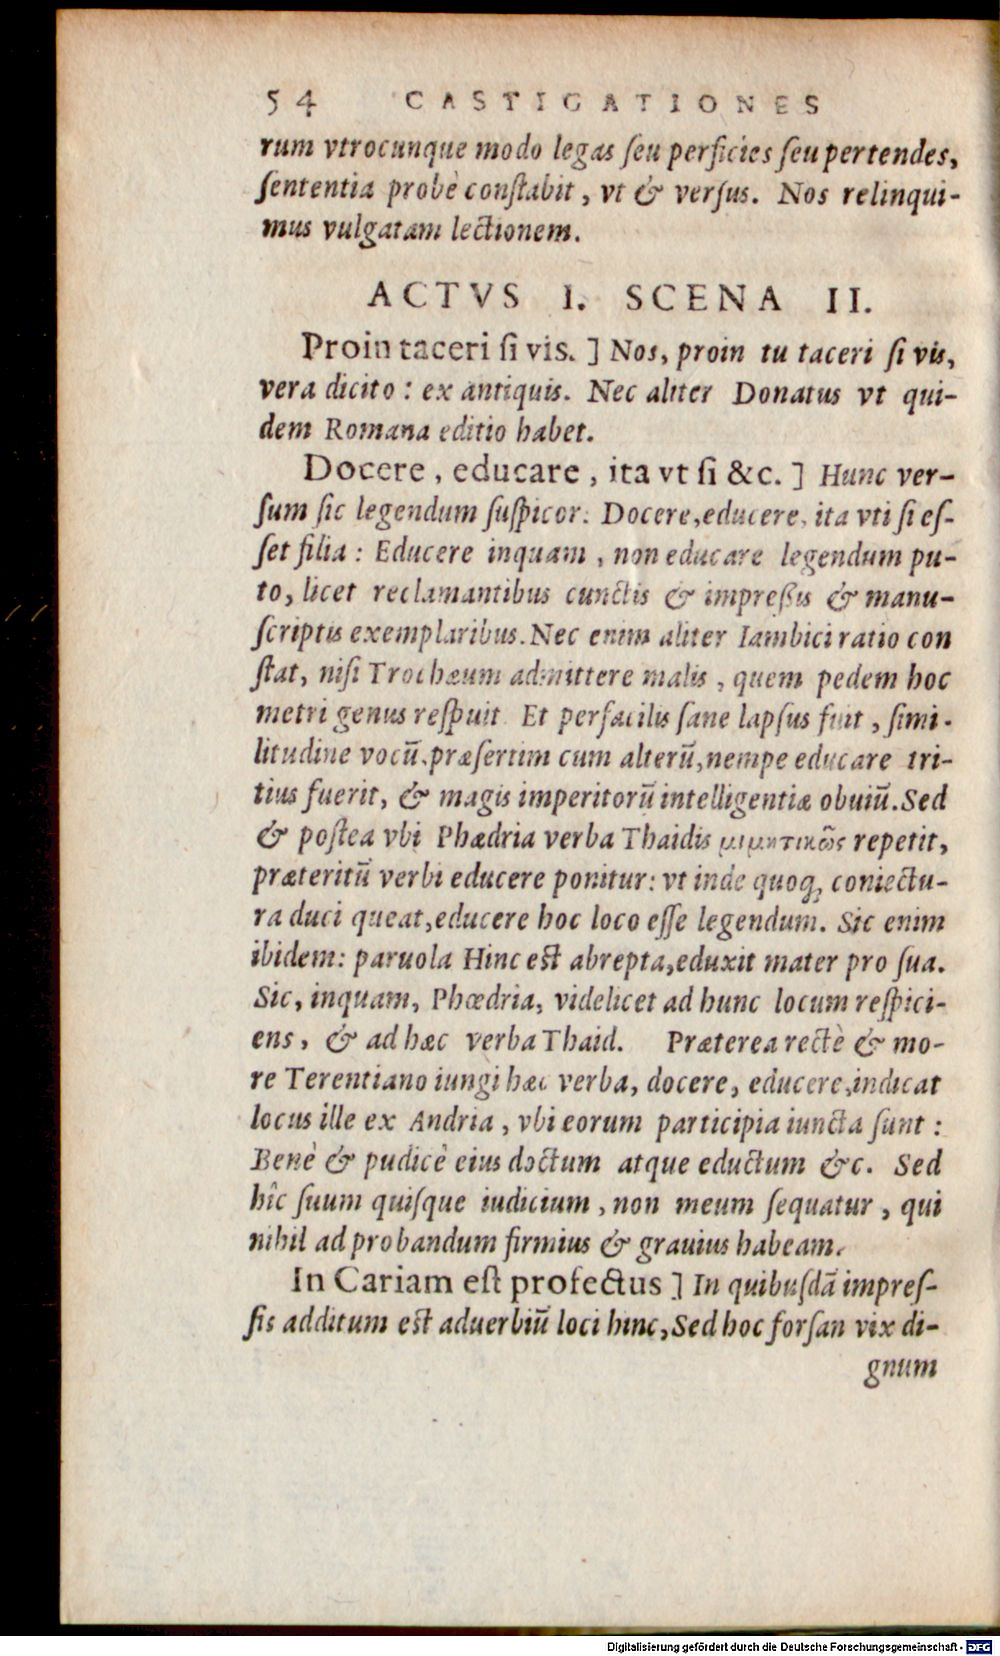 54 CASTIGATIONES
rum vtrocunque modo legas ſeu perficies ſeu pertendes,
ſententia probè conſtabit, vt & verſus. Nos relinqui-
mus vulgatam lectionem.
ACTVS I. SCENA II.
Proin taceri ſi vis. ] Nos, proin tu taceri ſi vis,
vera dicito : ex antiquis. Nec aliter Donatus vt qui-
dem Romana editio habet.
Docere, educare, ita vt ſi &c. ] Hunc ver-
ſum ſic legendum ſuſpicor: Docere, educere, ita vti ſi eſ-
ſet filia : Educere inquam, non educare legendum pu-
to, licet reclamantibus cunctis & impreßis & manu-
ſcriptis exemplaribus. Nec enim aliter Iambici ratio con
ſtat, niſi Trochæum admittere malis, quem pedem hoc
metri genus reſpuit. Et perfacilis ſane lapſus fuit, ſimi-
litudine vocū, præſertim cum alterū, nempe educare tri-
tius fuerit, & magis imperitorū intelligentiæ obuiū. Sed
& poſtea vbi Phædria verba Thaidis μιμητικῶς repetit,
præteritū verbi educere ponitur: vt inde quoq; coniectu-
ra duci queat, educere hoc loco eſſe legendum. Sic enim
ibidem: paruola Hinc eſt abrepta, eduxit mater pro ſua.
Sic, inquam, Phœdria, videlicet ad hunc locum reſpici-
ens, & ad hæc verba Thaid. Præterea rectè & mo-
re Terentiano iungi hæc verba, docere, educere, indicat
locus ille ex Andria, vbi eorum participia iuncta ſunt :
Benè & pudicè eius doctum atque eductum &c. Sed
hîc ſuum quiſque iudicium, non meum ſequatur, qui
nihil ad probandum firmius & grauius habeam.
In Cariam eſt profectus ] In quibuſdā impreſ-
ſis additum eſt aduerbiū loci hinc, Sed hoc forſan vix di-
gnum
Digitalisierung gefördert durch die Deutsche Forschungsgemeinschaft - DFG